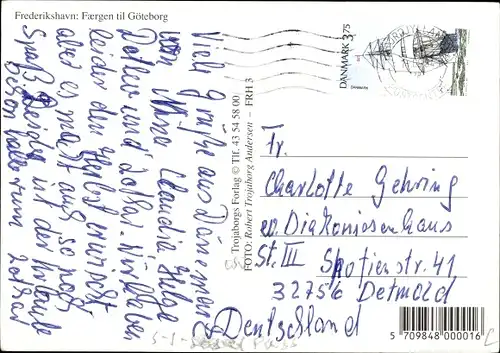 Frederikshavn: Færgen til Göteborg
Viele Grüße aus Dänemark
von Nina Claudia Helga
Detlev und Lothar. Wir haben
leider den Herbst erwischt
aber es macht auch so noch
Spaß. Leider ist der Urlaub
schon halb rum Lothar
Trojaborgs Forlag © Tlf. 43 54 58 00
FOTO: Robert Trojaborg Andersen – FRH 3
DANMARK 3,75
Fr.
Charlotte Gehring
ev. Diakonissenhaus
St. III Sofienstr. 41
32756 Detmold
Deutschland
5 709848 000016